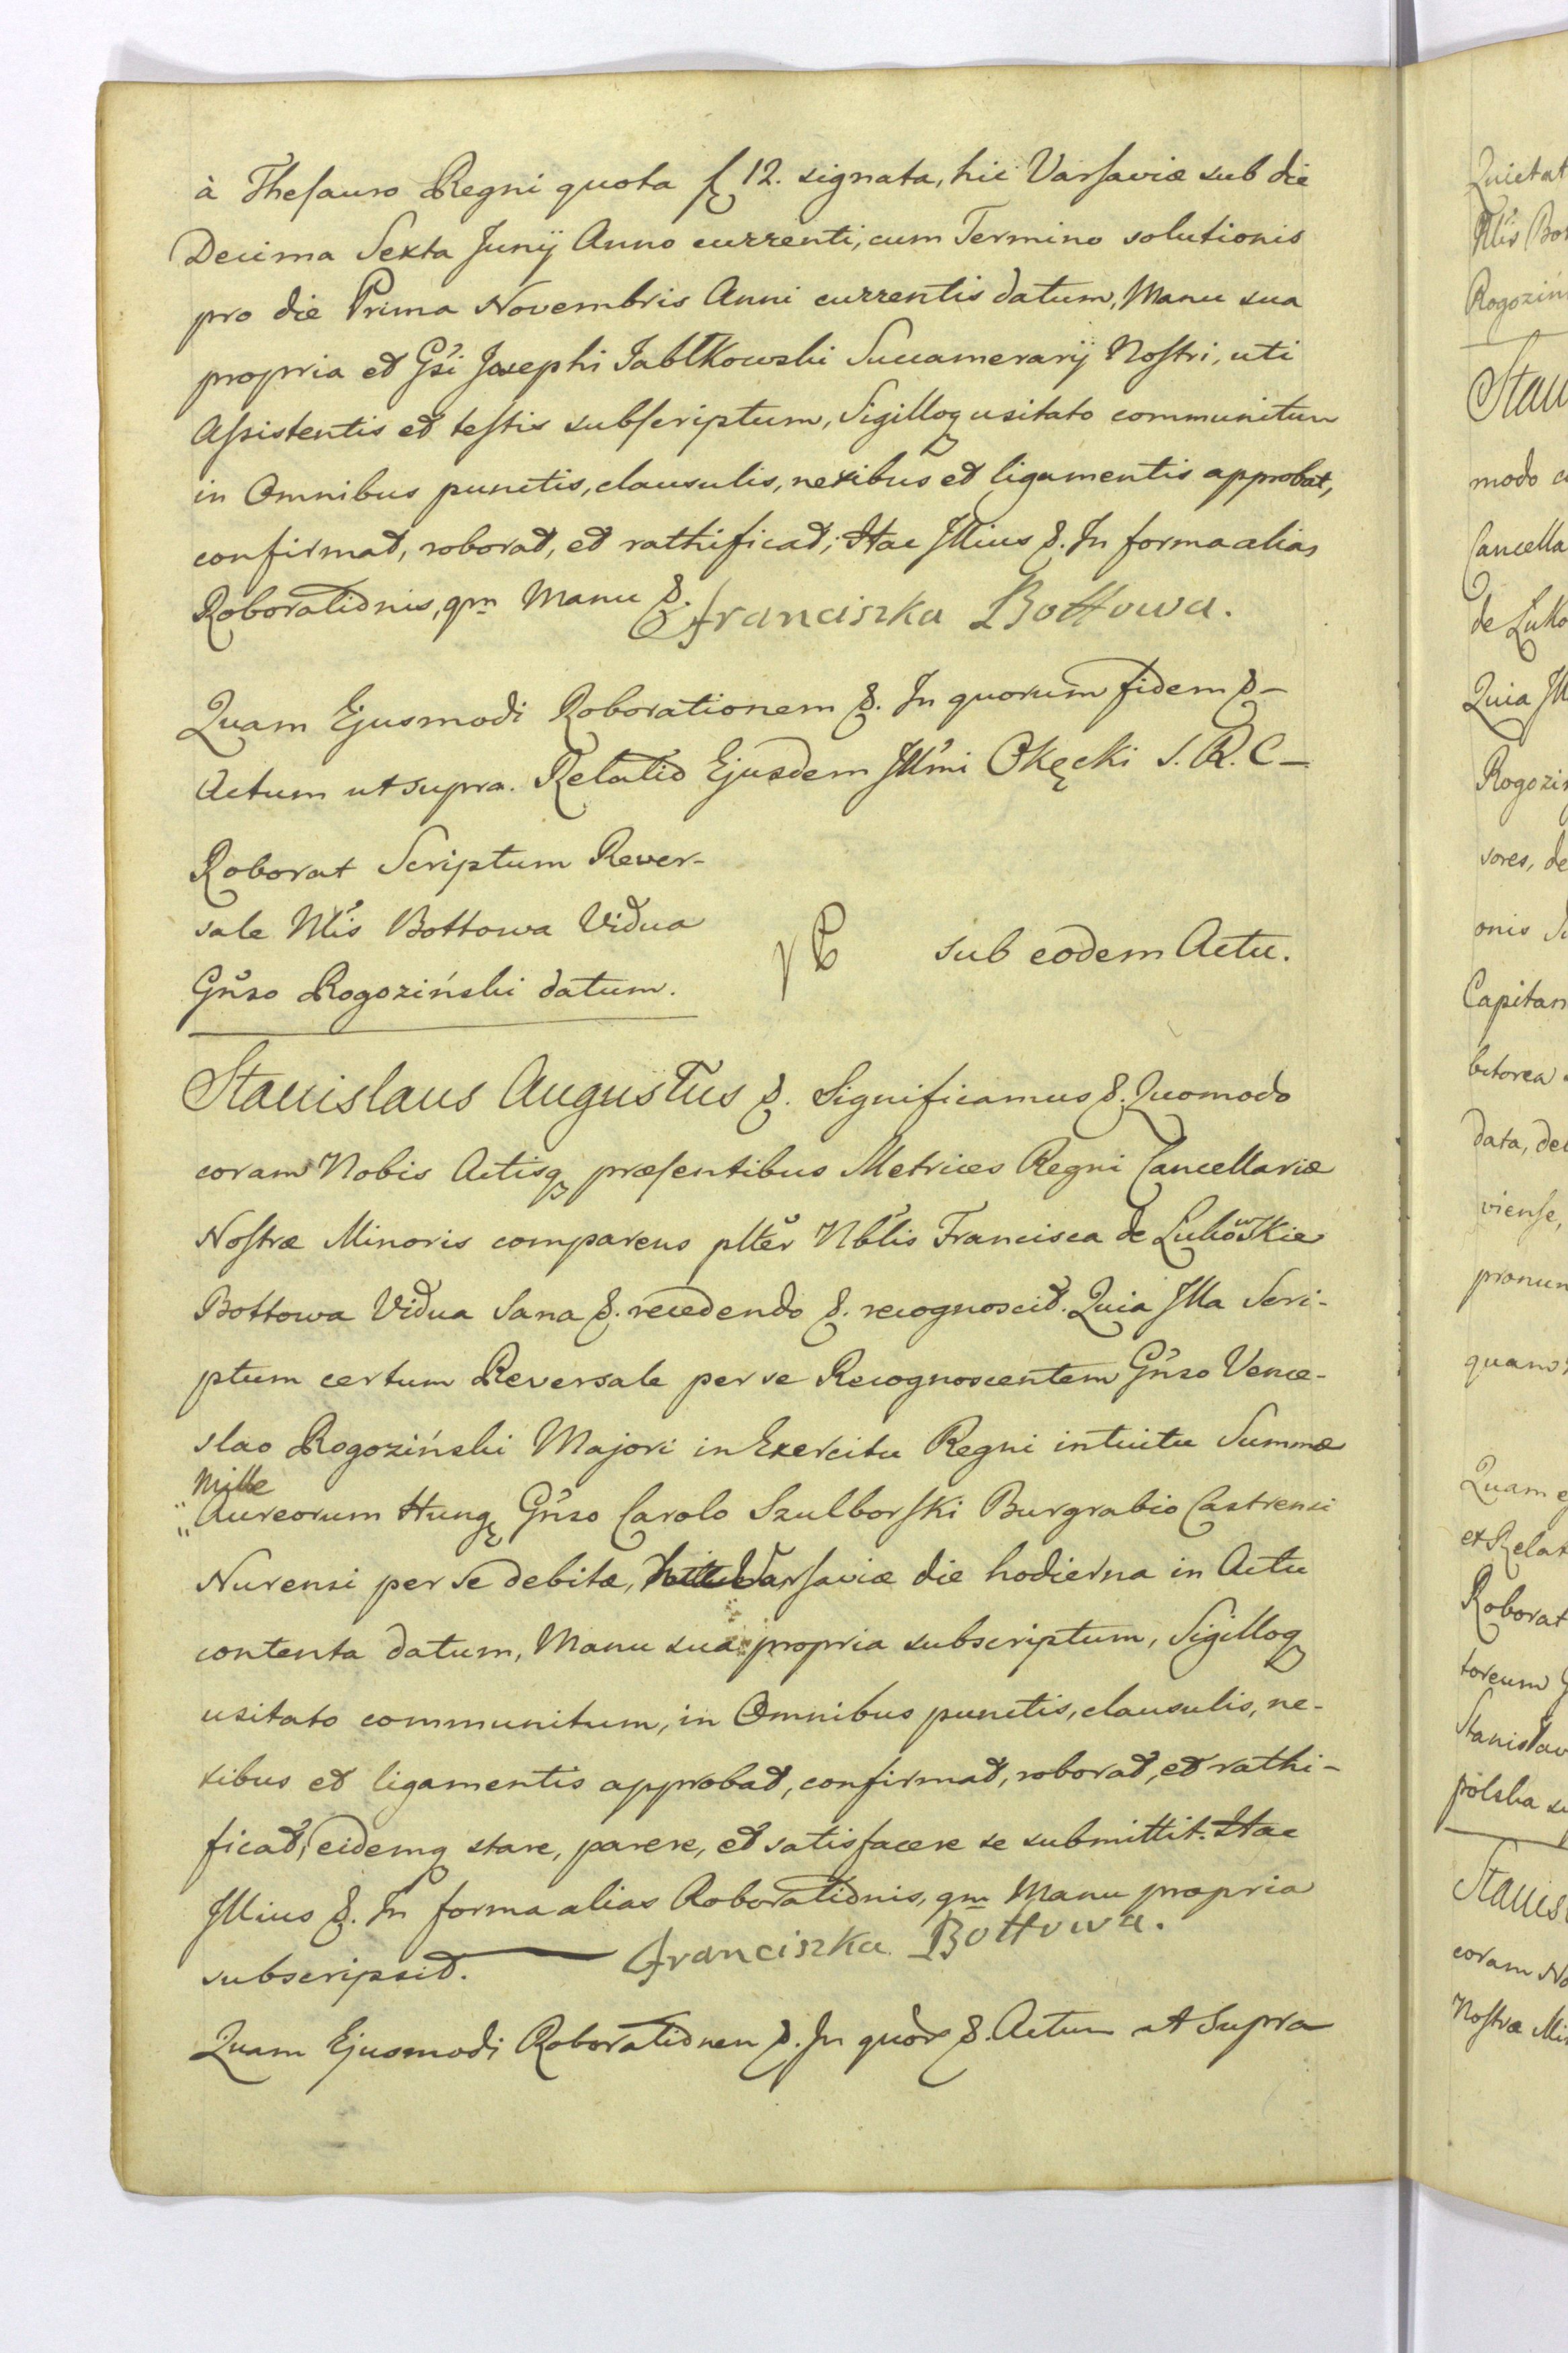 à Thesauro Regni quota f 12. signata, hic Varsaviæ sub die
Decima Sexta Junij Anno currenti, cum Termino solutionis
pro die Prima Novembris Anni currentis datum, Manu sua
propria et Gsi Josephi Jabłkowski Succamerarij Nostri, uti
Assistentis et testis subscriptum, Sigilloq usitato communitum
in Omnibus punctis, clausulis, nexibus et ligamentis approbat,
confirmat, roborat, et rathificat; Hac Illius &. In forma alias
Roborationis, qm Manu &. Franciszka Bottowa.
Quam Ejusmodi Roborationem &. In quorum fidem &-
Actum ut supra. Relatio Ejusdem Illmi Okęcki S. R. C-
Roborat Scriptum Rever-
sale Nlis Bottowa Vidua
Gnso Rogoziński datum.
sub eodem Actu.
Stanislaus Augustus &. Significamus &. Quomodo
coram Nobis Actisq præsentibus Metrices Regni Cancellariæ
Nostræ Minoris comparens plter Nblis Francisca de Lukowskie
Bottowa Vidua Sana &. recedendo &. recognoscit. Quia Illa Scri-
ptum certum Reversale per se Recognoscentem Gnso Vence-
slao Rogoziński Majori in Exercitu Regni intuitu Summæ
Mille
Aureorum Hung Gnso Carolo Szulborski Burgrabio Castrensi
Nurensi per se debitæ, Varsaviæ die hodierna in Actu
contenta datum, Manu sua propria subscriptum, Sigilloq
usitato communitum, in Omnibus punctis, clausulis, ne-
xibus et ligamentis approbat, confirmat, roborat, et rathi-
ficat, eidemq stare, parere, et satisfacere se submittit. Hac
Illius &. In forma alias Roborationis, qm Manu propria
subscripsit. Franciszka Bottowa.
Quam Ejusmodi Roborationem &. In quor &. Actum ut Supra
Quietat
Nlis Bot
Rogoziń
Stan
modo c
Cancella
de Luko
Quia Ill
Rogozin
sores, de
onis
Capitan
bitorea
data, de
viense,
pronun
quam
Quam e
et Relat
Roborat
toreum G
Stanislav
polska su
Stanis
coram No
Nostræ Min